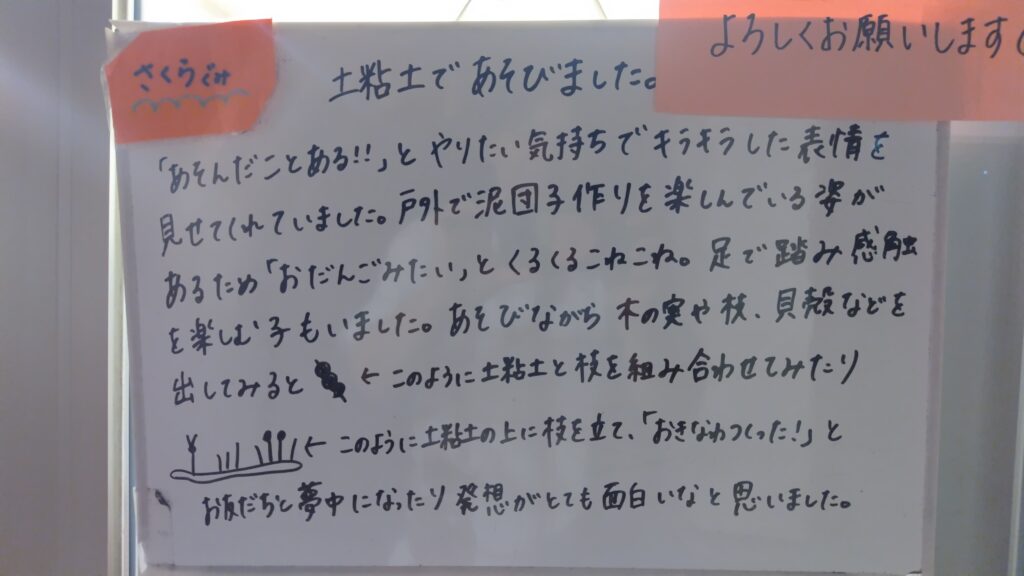 よろしくお願いします
さくらぐみ
土粘土であそびました。
「あそんだことある!!」とやりたい気持ちでキラキラした表情を
見せてくれていました。戸外で泥団子作りを楽しんでいる姿が
あるため「おだんごみたい」とくるくるこねこね。足で踏み感触
を楽しむ子もいました。あそびながら木の実や枝、貝殻などを
出してみると ← このように土粘土と枝を組み合わせてみたり
← このように土粘土の上に枝を立て、「おきなわつくった!」と
お友だちと夢中になったり発想がとても面白いなと思いました。